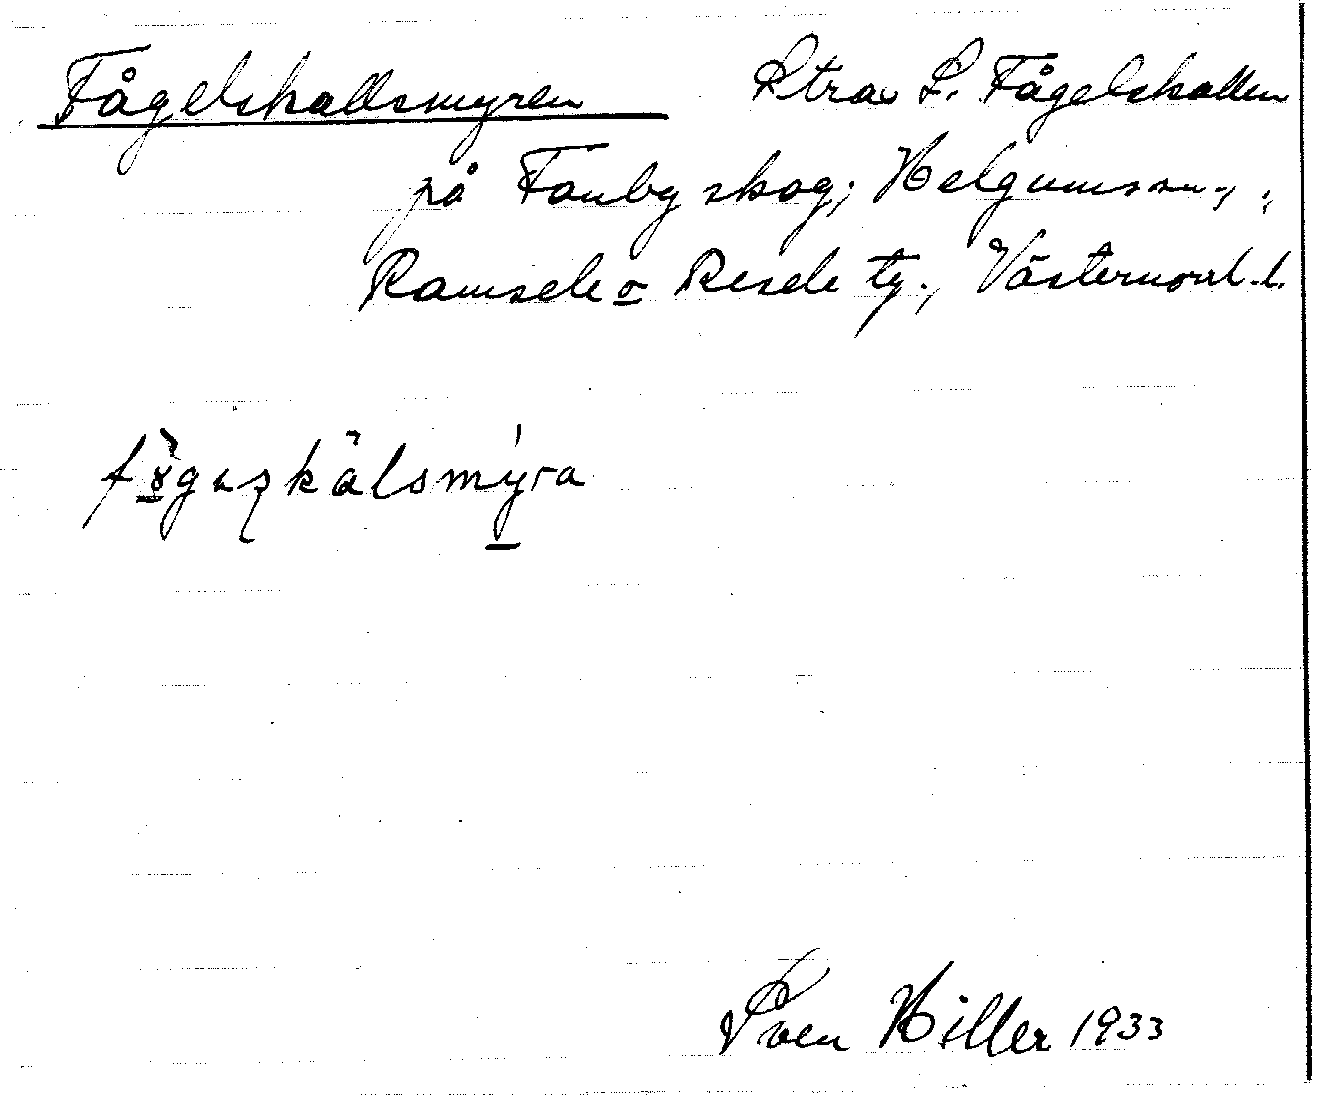 Fågelskallsmyren Strax S. Fågelskallen
på Fanby skog, Helgums sn.,
Ramsele o Resele tg., Västernorrl. l.
Sven Hiller 1933